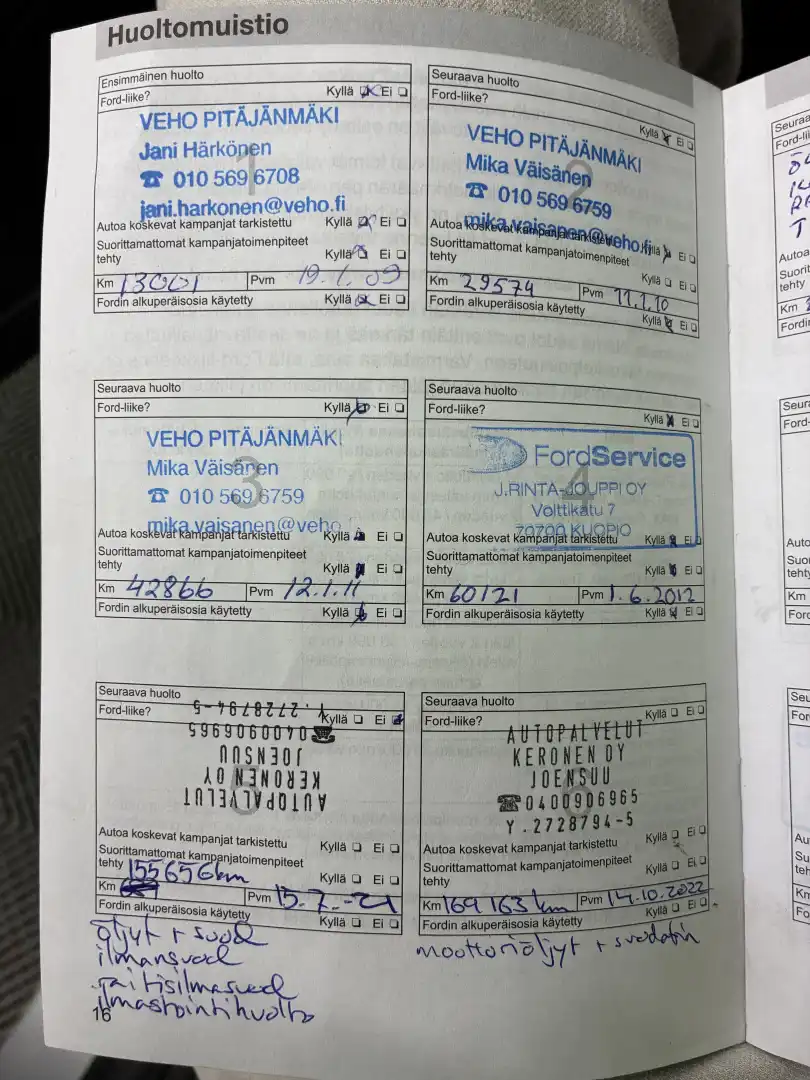 Huoltomuistio
Ensimmäinen huolto
Ford-liike? Kyllä Ei
VEHO PITÄJÄNMÄKI
Jani Härkönen
1
☎ 010 569 6708
jani.harkonen@veho.fi
Autoa koskevat kampanjat tarkistettu Kyllä Ei
Suorittamattomat kampanjatoimenpiteet
tehty Kyllä Ei
Km 13001 Pvm 19.1.09
Fordin alkuperäisosia käytetty Kyllä Ei
Seuraava huolto
Ford-liike? Kyllä Ei
VEHO PITÄJÄNMÄKI
Mika Väisänen
2
☎ 010 569 6759
mika.vaisanen@veho.fi
Autoa koskevat kampanjat tarkistettu Kyllä Ei
Suorittamattomat kampanjatoimenpiteet
tehty Kyllä Ei
Km 29574 Pvm 11.1.10
Fordin alkuperäisosia käytetty Kyllä Ei
Seuraava huolto
Ford-liike? Kyllä Ei
VEHO PITÄJÄNMÄKI
Mika Väisänen
3
☎ 010 569 6759
mika.vaisanen@veho
Autoa koskevat kampanjat tarkistettu Kyllä Ei
Suorittamattomat kampanjatoimenpiteet
tehty Kyllä Ei
Km 42866 Pvm 12.1.11
Fordin alkuperäisosia käytetty Kyllä Ei
Seuraava huolto
Ford-liike? Kyllä Ei
FordService
4
J.RINTA-JOUPPI OY
Volttikatu 7
70700 KUOPIO
Autoa koskevat kampanjat tarkistettu Kyllä Ei
Suorittamattomat kampanjatoimenpiteet
tehty Kyllä Ei
Km 60121 Pvm 1.6.2012
Fordin alkuperäisosia käytetty Kyllä Ei
Seuraava huolto
Ford-liike? Kyllä Ei
AUTOPALVELUT
KERONEN OY
JOENSUU
☎0400906965
Y.2728794-5
5
Autoa koskevat kampanjat tarkistettu Kyllä Ei
Suorittamattomat kampanjatoimenpiteet
tehty 155656km Kyllä Ei
Km Pvm 15.7.-21
Fordin alkuperäisosia käytetty Kyllä Ei
öljyt + suod
ilmansuod
raitisilmasuod
ilmastointihuolto
Seuraava huolto
Ford-liike? Kyllä Ei
AUTOPALVELUT
KERONEN OY
JOENSUU
☎0400906965
Y.2728794-5
Autoa koskevat kampanjat tarkistettu Kyllä Ei
Suorittamattomat kampanjatoimenpiteet
tehty Kyllä Ei
Km 169163 km Pvm 14.10.2022
Fordin alkuperäisosia käytetty Kyllä Ei
moottoriöljyt + suodatin
16